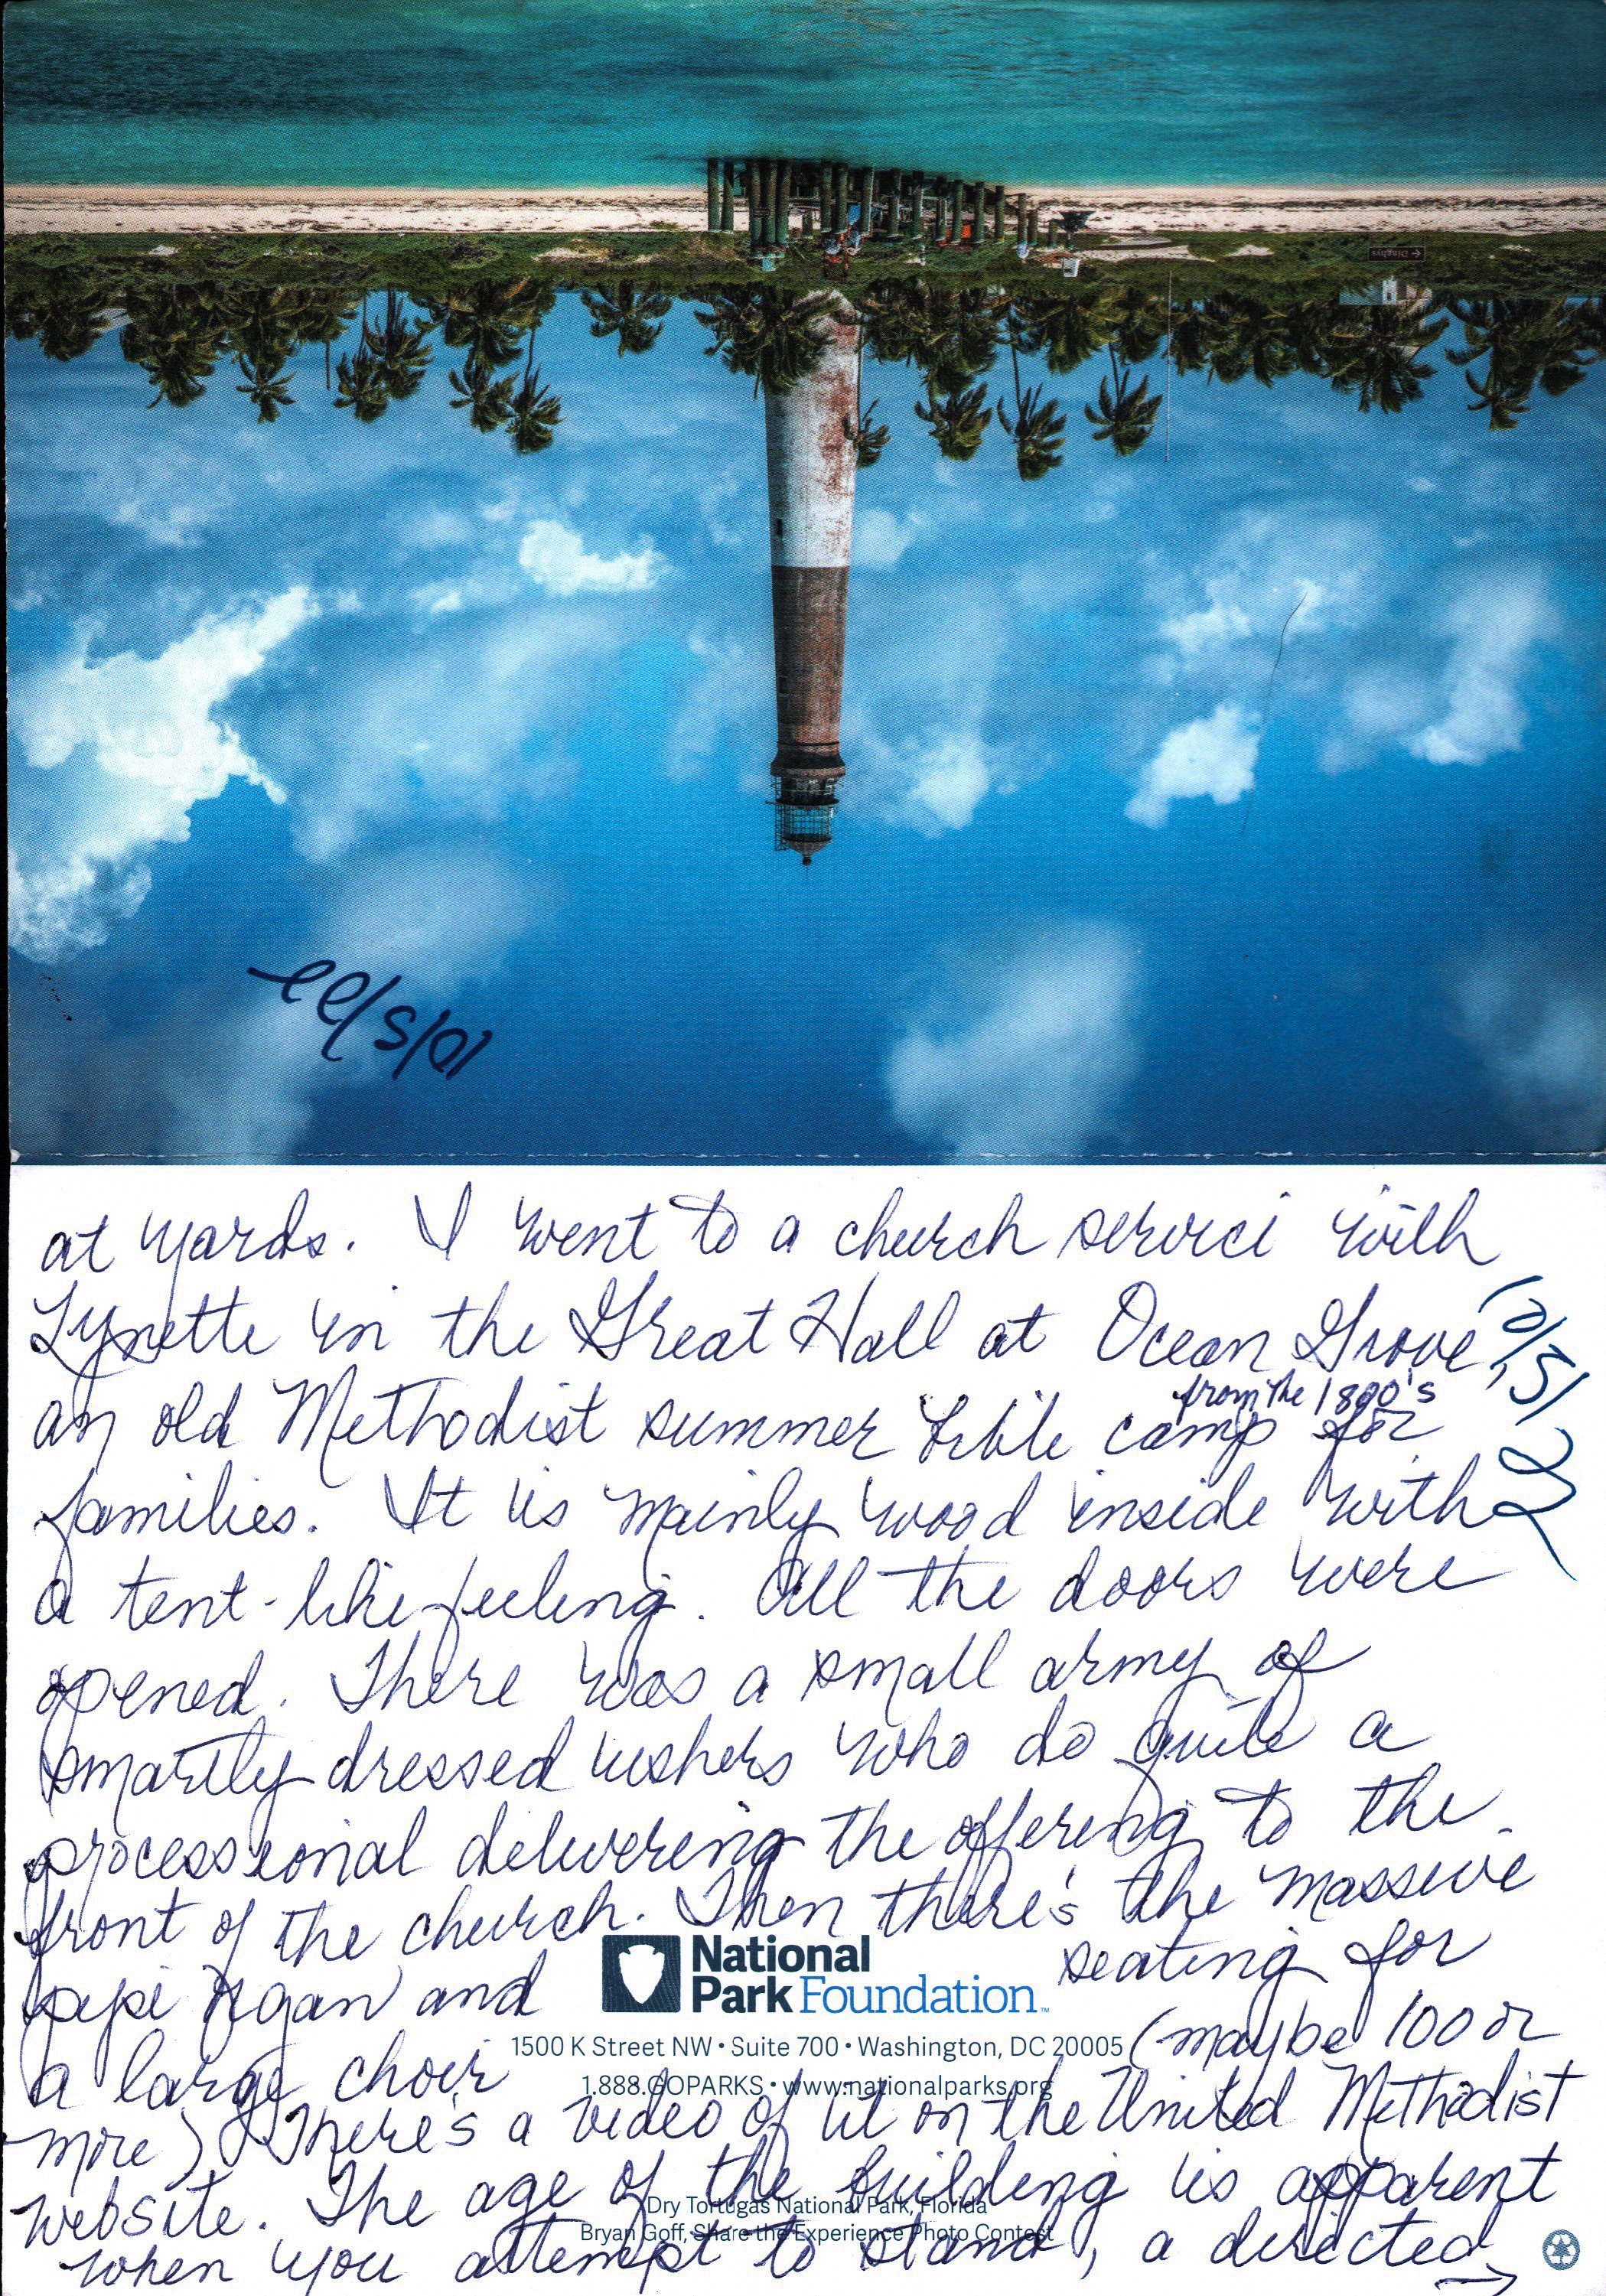 ← Dinghys
10/5/22
at yards. I went to a church service with
Lynette in the Great Hall at Ocean Grove,
10/5/22
from the 1800's
an old Methodist summer bible camp for
families. It is mainly wood inside with
a tent-like feeling. All the doors were
opened. There was a small army of
smartly dressed ushers who do quite a
processional delivering the offering to the
front of the church. Then there's the massive
pipe organ and seating for
National
Park Foundation™
a large choir (maybe 100 or
1500 K Street NW • Suite 700 • Washington, DC 20005
1.888.GOPARKS • www.nationalparks.org
more) There's a video of it on the United Methodist
website. The age of the building is apparent
Dry Tortugas National Park, Florida
Bryan Goff, Share the Experience Photo Contest
when you attempt to stand, a directed
→